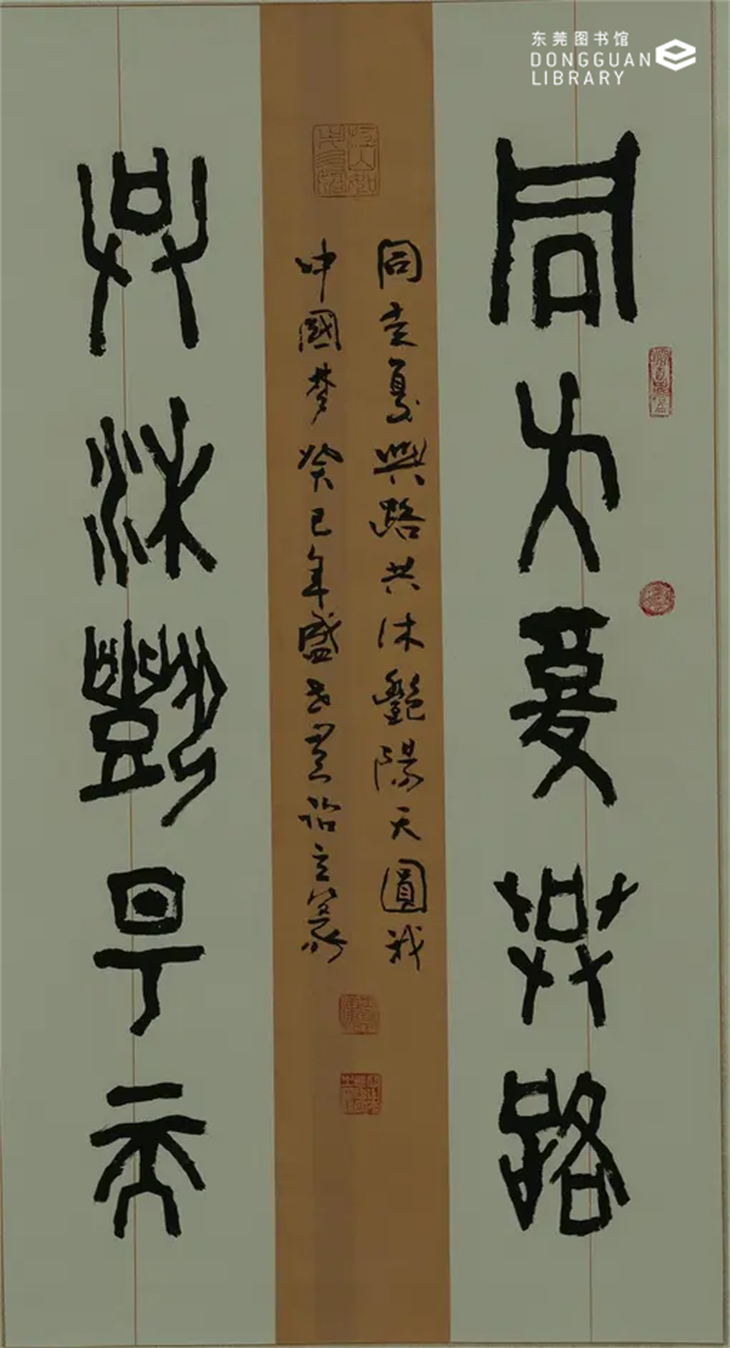 东莞图书馆
DONGGUAN
LIBRARY
同走复興路
同走复興路共沐艷陽天圓我
中國梦癸巳年盛世
共沐艷陽天